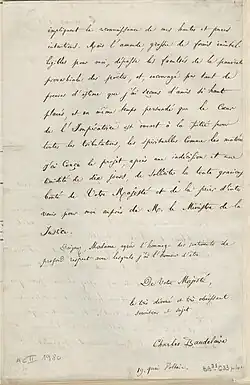 impliquant la reconnaissance de mes hautes et pures
intentions. Mais l'amende, grossie de frais inintel-
ligibles pour moi, dépasse les facultés de la pauvreté
proverbiale des poètes, et, encouragé par tant de
preuves d'estime que j'ai reçues d'amis si haut
placés, et en même temps persuadé que le Cœur
de l'Impératrice est ouvert à la pitié pour
toutes les tribulations, les spirituelles comme les matérielles
j'ai conçu le projet, après une indécision et une
timidité de dix jours, de solliciter la toute gracieuse
bonté de Votre Majesté et de la prier d'inter-
venir pour moi auprès de M. le Ministre de la
Justice.
Daignez, Madame, agréer l'hommage des sentiments de
profond respect avec lesquels j'ai l'honneur d'être
De Votre Majesté,
le très dévoué et très obéissant
serviteur et sujet
Charles Baudelaire
19, quai Voltaire.
AE II 1980